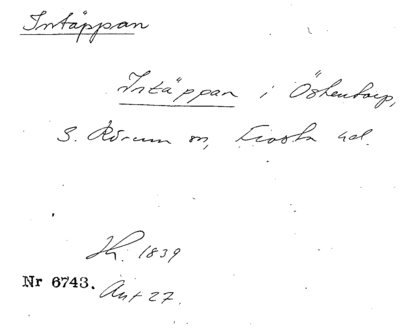 Intäppan
Intäppan i Östentorp,
S. Rörum sn, Frosta hd.
Kh. 1839
Nr 6743. Ant 27.